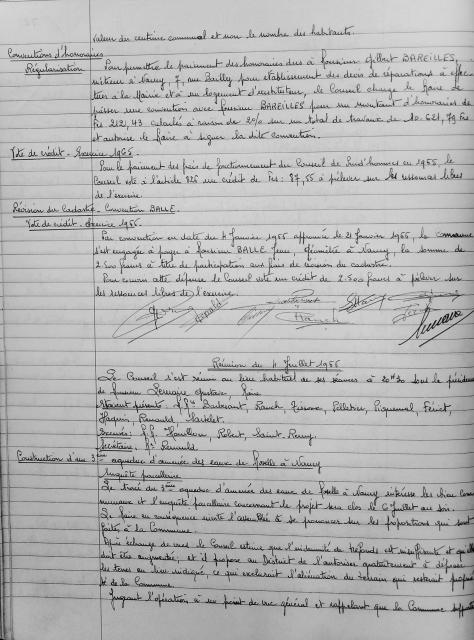 valeur du centime communal et non le nombre des habitants.
Conventions d'honoraires
Régularisation
Pour permettre le paiement des honoraires dus à Monsieur Gilbert BAREILLES,
métreur à Nancy, 7, rue Bailly pour établissement des devis de réparations à effec-
tuer à la Mairie et à un logement d'instituteur, le Conseil charge le Maire de
passer une convention avec Monsieur BAREILLES pour un montant d'honoraires de
Frs 212,43 calculés à raison de 2% sur un total de travaux de 10.621,79 Frs
et autorise le Maire à signer la dite convention.
Vote de crédit - Exercice 1965.
Pour le paiement des frais de fonctionnement du Conseil de Prud'hommes en 1955, le
Conseil vote à l'article 826 un crédit de Frs : 87,55 à prélever sur les ressources libres
de l'exercice.
Révision du Cadastre - Convention BALLE.
Vote de crédit - Exercice 1956.
Par convention en date du 4 Janvier 1956 approuvée le 21 Janvier 1956, la commune
s'est engagée à payer à Monsieur BALLE Jean, Géomètre à Nancy, la somme de
2 500 francs à titre de participation aux frais de révision du cadastre.
Pour couvrir cette dépense le Conseil vote un crédit de 2.500 francs à prélever sur
les ressources libres de l'exercice.
Réunion du 4 Juillet 1956
Le Conseil s'est réuni au lieu habituel de ses séances à 20h30 sous la présidence
de Monsieur Gustave, Maire
Etaient présents :
Pelletier, Riquennal,
Renauld,
Excusés : Robert, Saint Remy.
Secrétaire : Renauld
Construction d'un 3ème aqueduc d'amenée des eaux de Moselle à Nancy
Enquête parcellaire
Le tracé du 3ème aqueduc d'amenée des eaux de Moselle à Nancy intéresse les biens com-
munaux et l'enquête parcellaire concernant ce projet sera close le 6 Juillet au soir.
Le Maire en conséquence invite l'assemblée à se prononcer sur les propositions qui sont
faites à la Commune.
Après échange de vues le Conseil estime que l'indemnité de tréfonds est insuffisante et qu'elle
doit être augmentée ; et il propose au District de l'autoriser gratuitement à déposer
les terres en lieu indiqué, ce qui exclurait l'aliénation du terrain qui resterait proprié-
té de la Commune.
Jugeant l'opération à un point de vue général et rappelant que la Commune